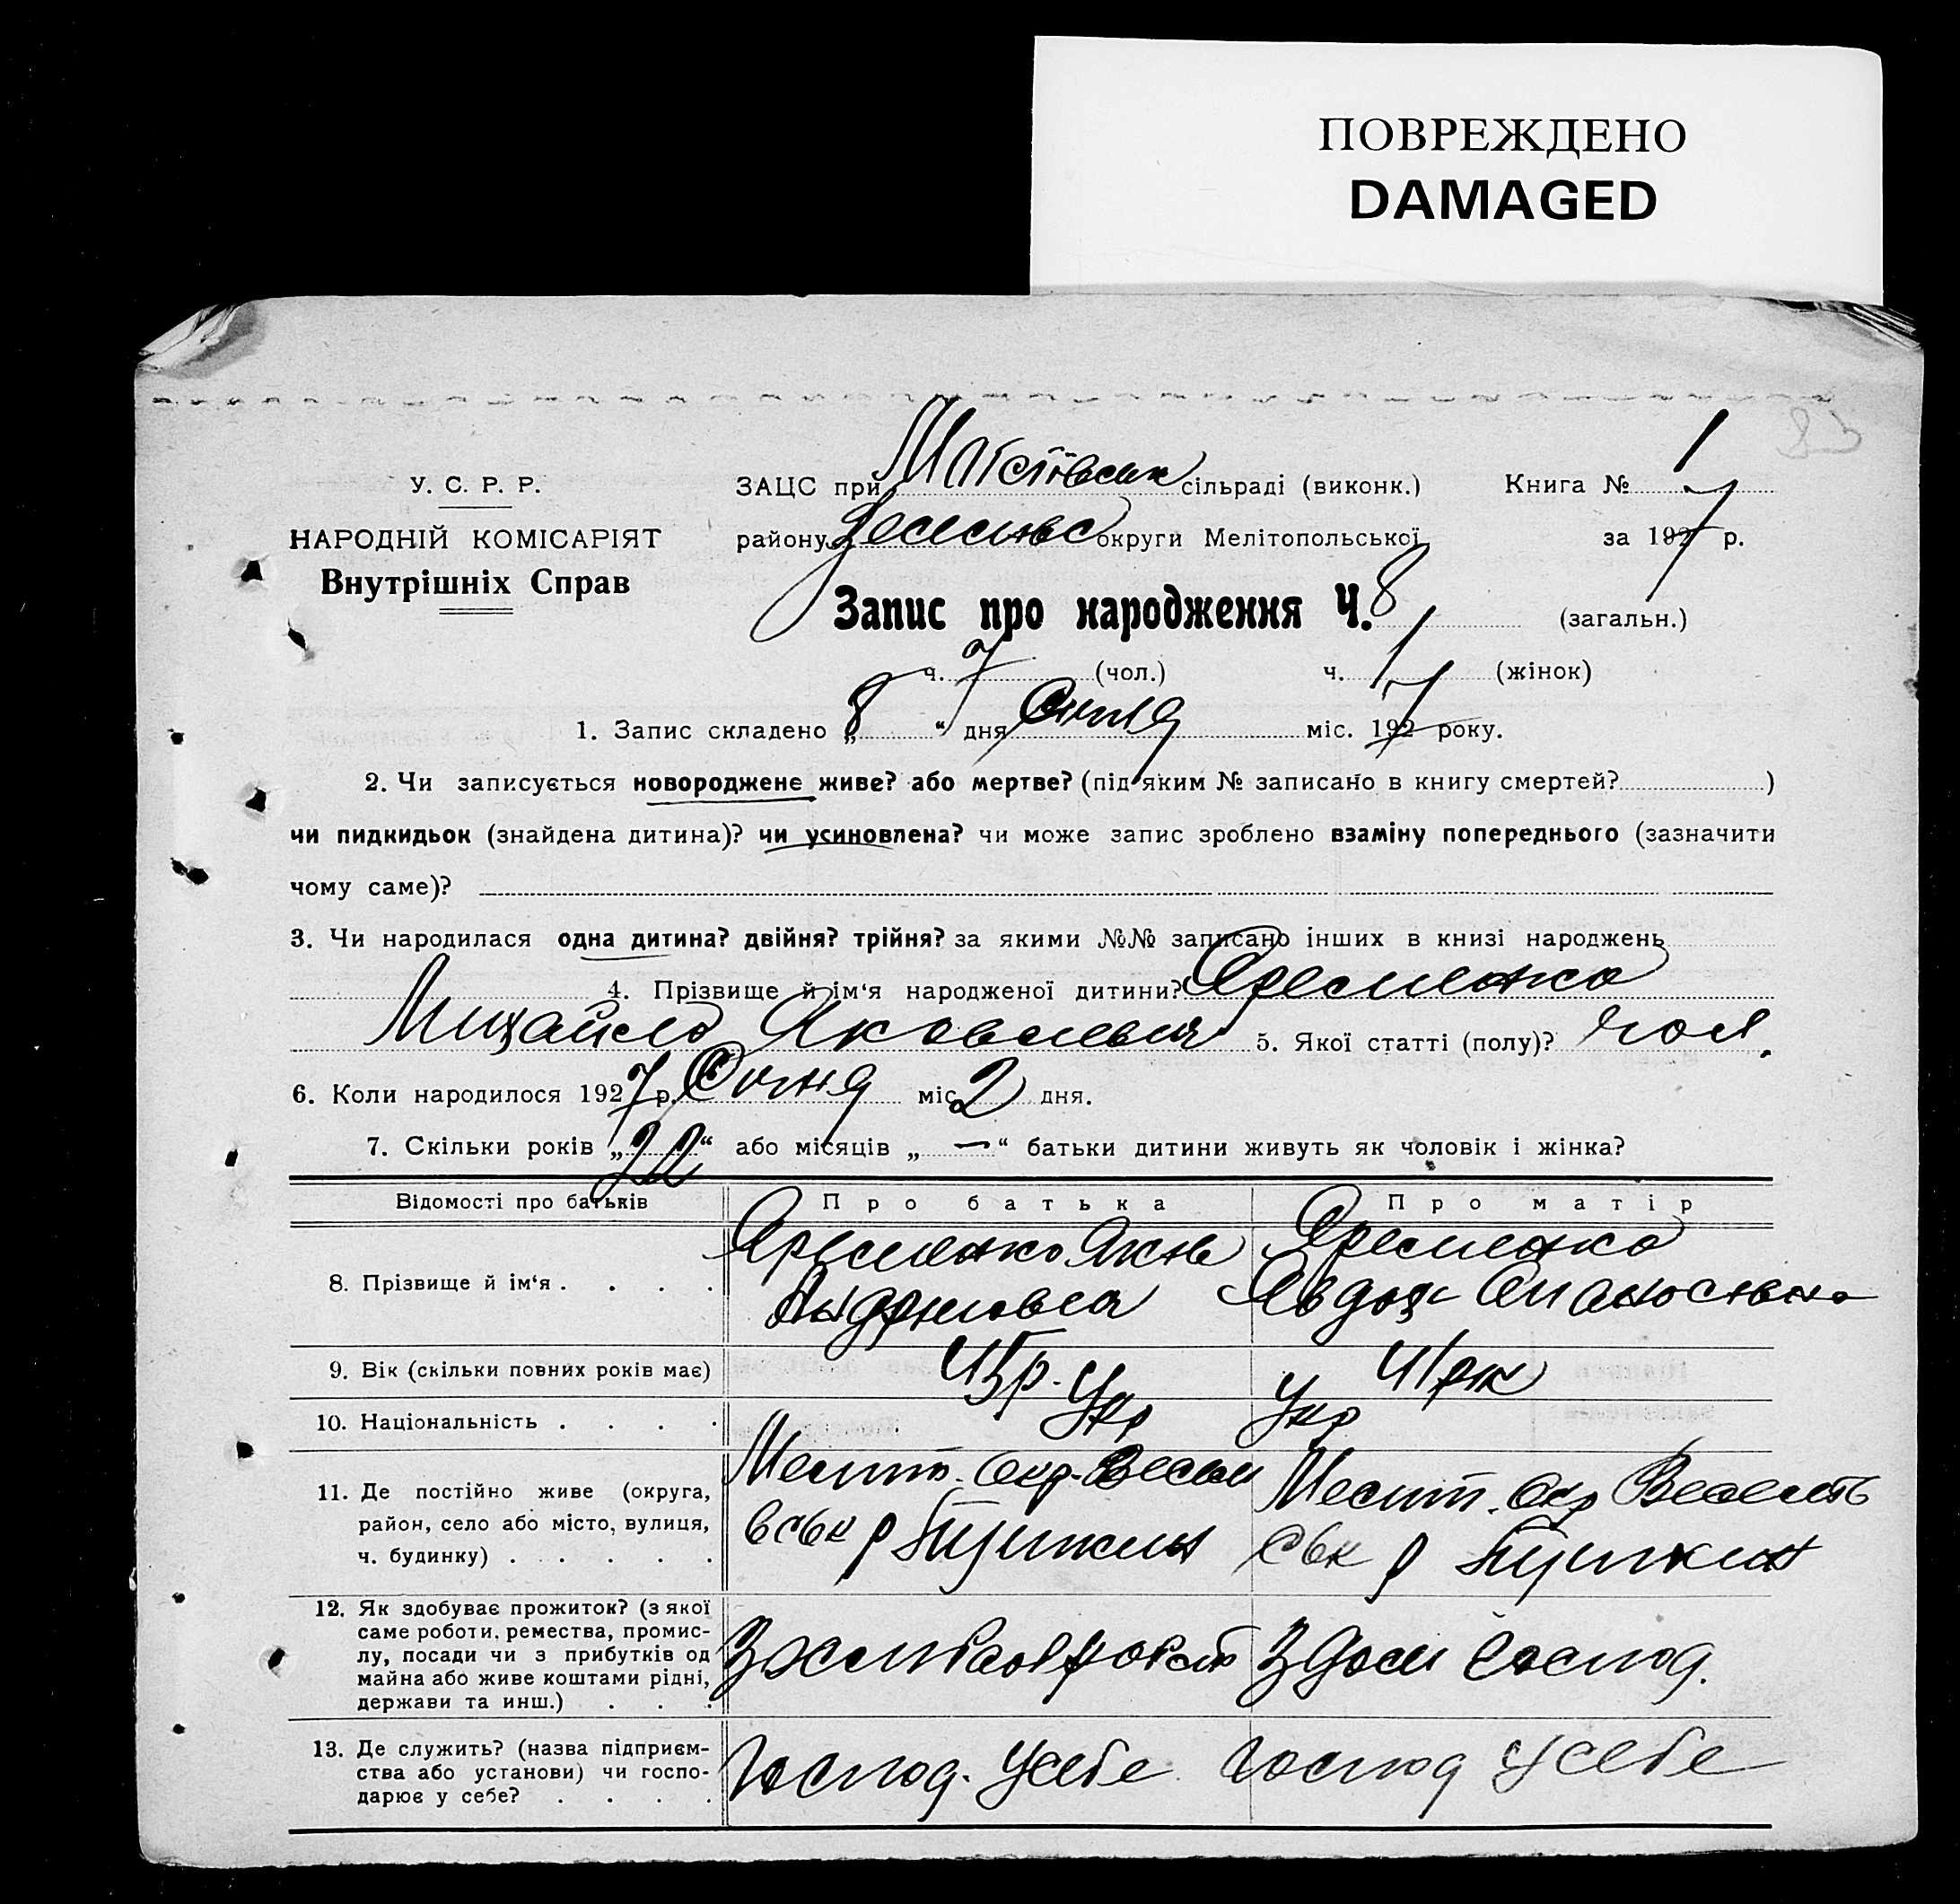 ПОВРЕЖДЕНО
DAMAGED
У. С. Р. Р.
НАРОДНІЙ КОМІСАРІЯТ
Внутрішніх Справ
ЗАЦС при сільраді (виконк.) Книга № 1
району округи Мелітопольської за 1927 р.
Запис про народження Ч. 8 (загальн.)
ч. 7 (чол.) ч. 1 (жінок)
1. Запис складено „ 8 “ дня Січня міс. 1927 року.
2. Чи записується новороджене живе? або мертве? (під яким № записано в книгу смертей? )
чи пидкидьок (знайдена дитина)? чи усиновлена? чи може запис зроблено взаміну попереднього (зазначити
чому саме)?
3. Чи народилася одна дитина? двійня? трійня? за якими №№ записано інших в книзі народжень
4. Прізвище й ім‘я народженої дитини? Яременко
Михайло Яковлевич 5. Якої статті (полу)? чол.
6. Коли народилося 1927 р. Січня міс. 2 дня.
7. Скільки років „ 22 “ або місяців „ — “ батьки дитини живуть як чоловік і жінка?
Відомості про батьків Про батька Про матір
8. Прізвище й ім‘я . . . . Яременко Яків Яременко
9. Вік (скільки повних років має)
10. Національність . . . . Укр Укр
11. Де постійно живе (округа, район, село або місто, вулиця, ч. будинку) . . . . . Мелит. окр. Мелит. окр
12. Як здобуває прожиток? (з якої саме роботи, ремества, промислу, посади чи з прибутків од майна або живе коштами рідні, держави та инш.) . . . З З дом господ.
13. Де служить? (назва підприємства або установи) чи господарює у себе? . . . . Господ. у себе Господ у себе